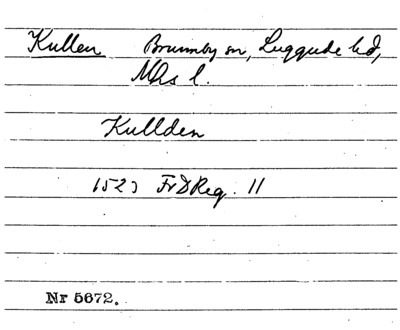 Kullen Brunnby sn, Luggude hd,
Mhs l.
Kullden
1523 FrDReg. 11
Nr 5672.